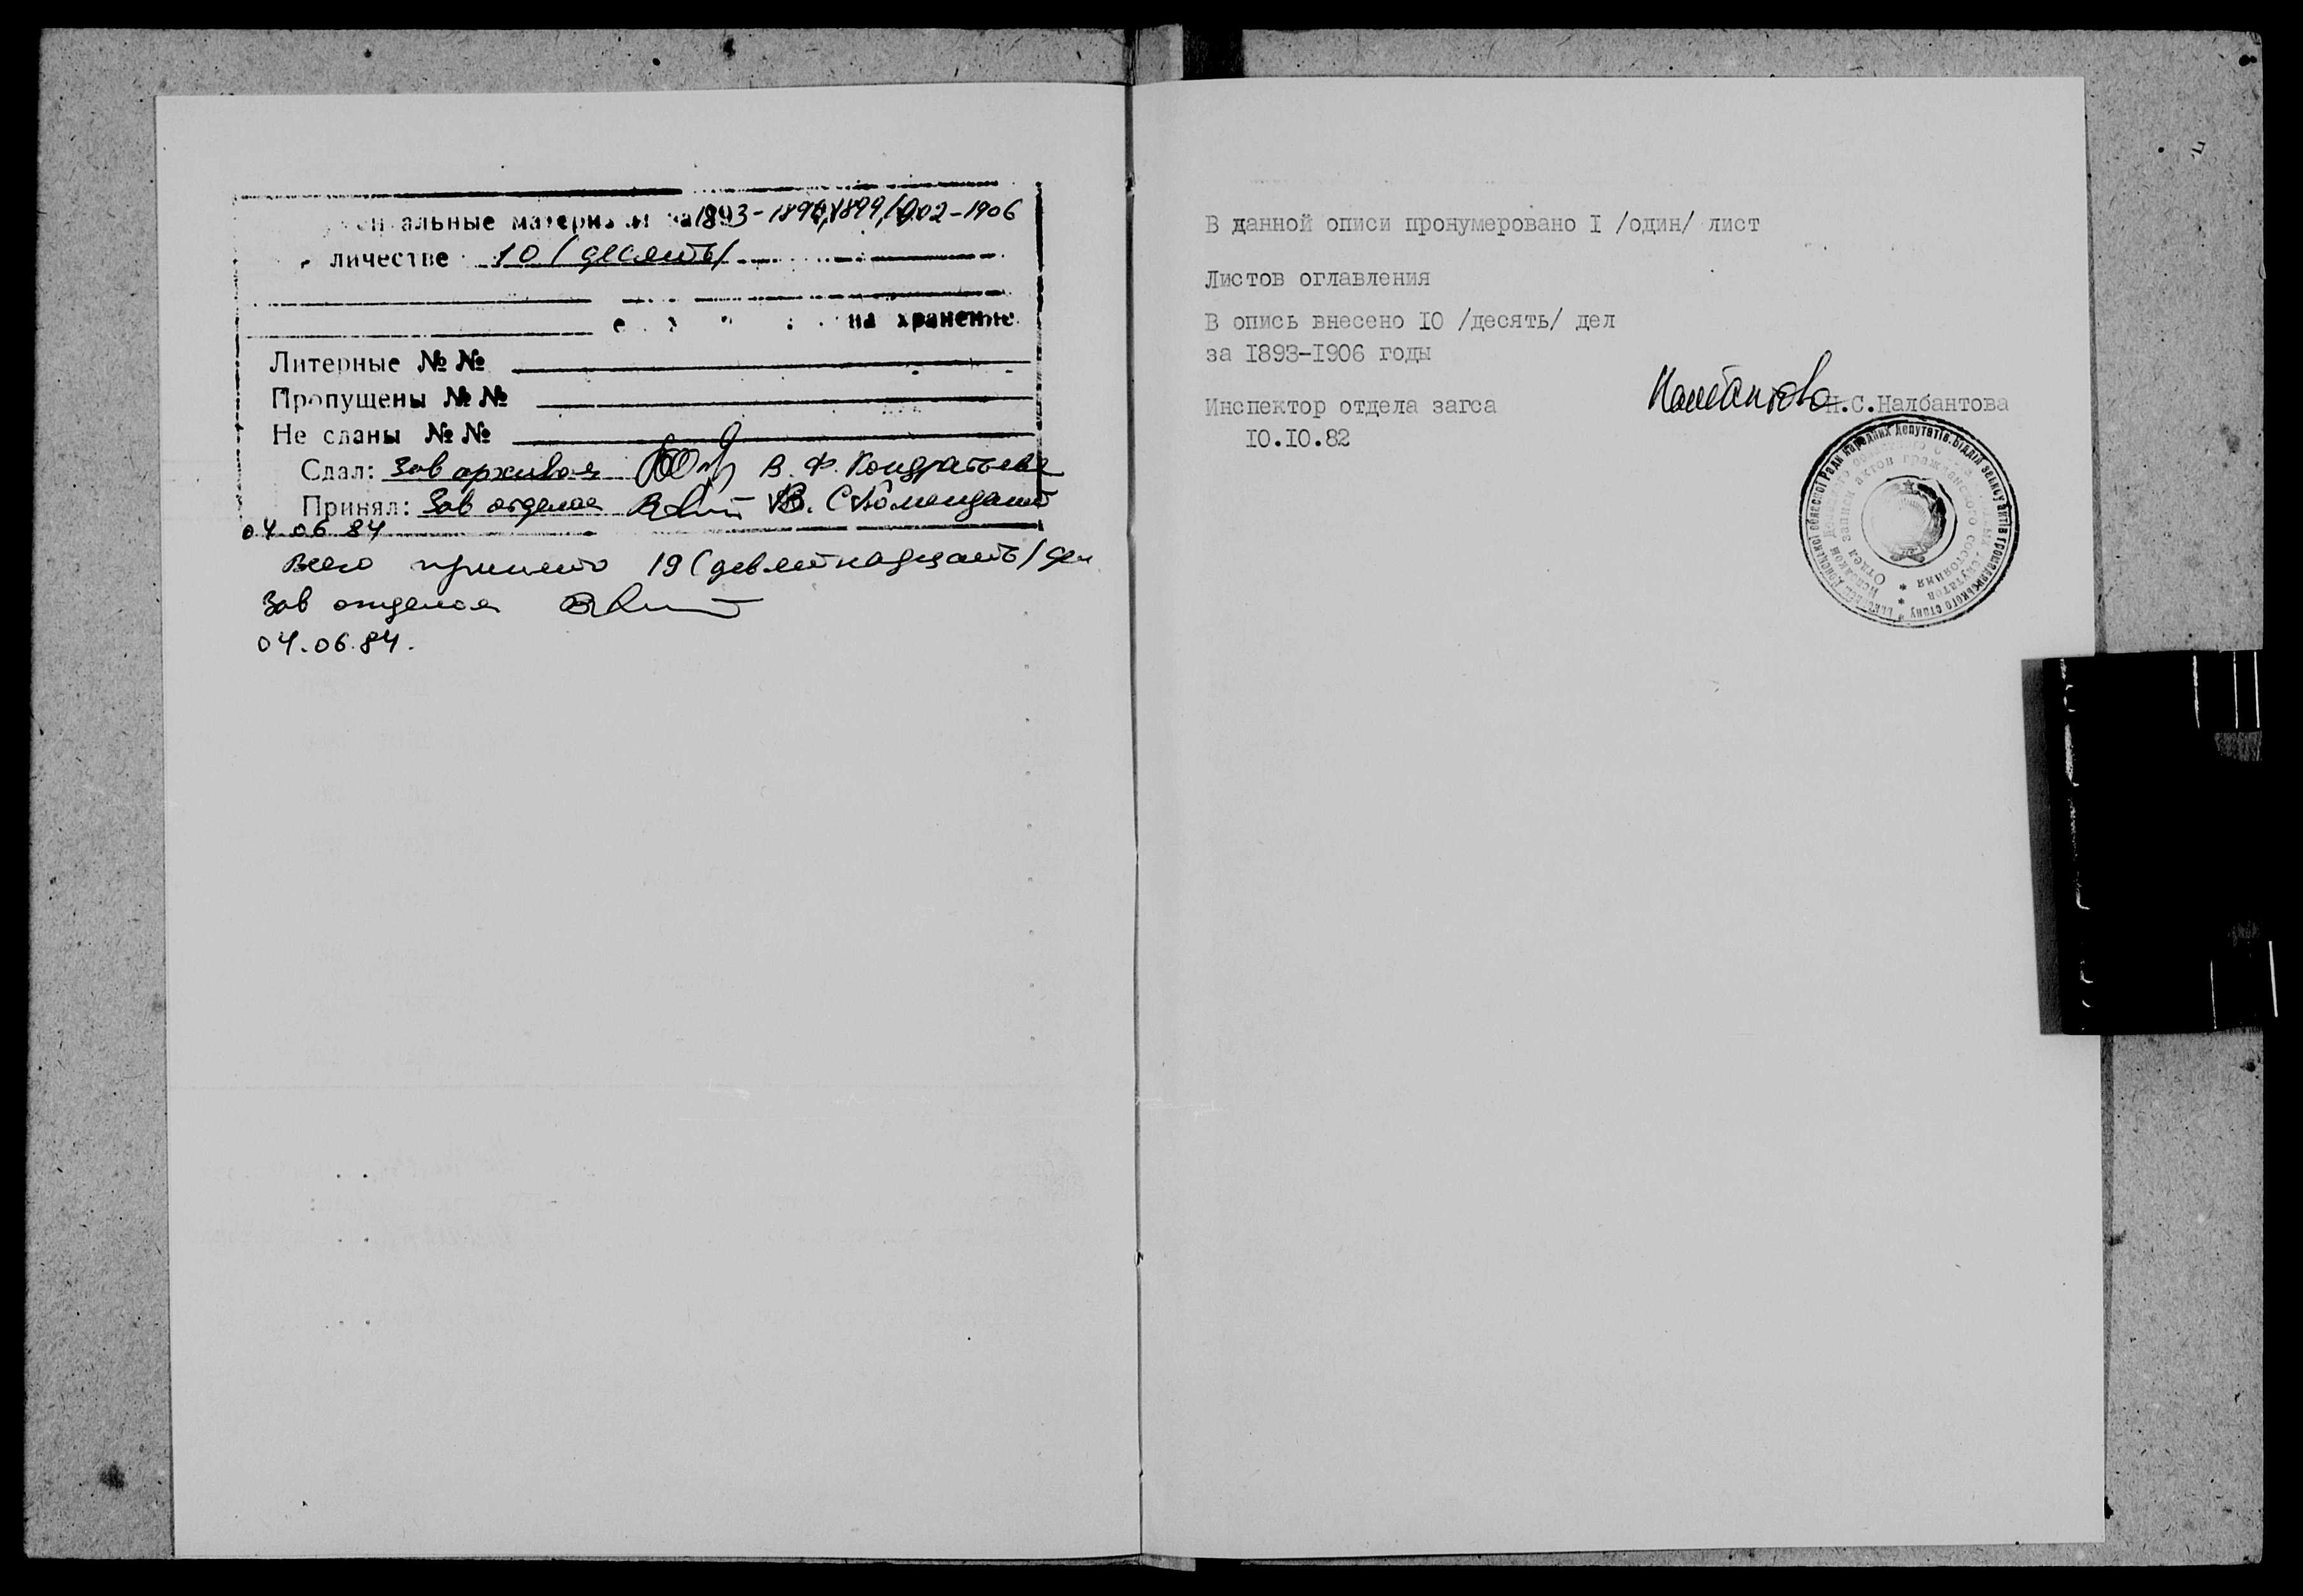 альные материалы за 1893-1896, 1899, 1902-1906
личестве 10 (десять)
на хранение
Литерные № №
Пропущены № №
Не сданы № №
Сдал: Зав архивом В. Ф. Кондратьева
Принял: Зав отделом В. С.
04.06.84
Всего принято 19 (девятнадцать) дел
Зав отделом
04.06.84.
В данной описи пронумеровано I /один/ лист
Листов оглавления
В опись внесено IO /десять/ дел
за I893-I906 годы
Инспектор отдела загса Н.С.Налбантова
IO.IO.82